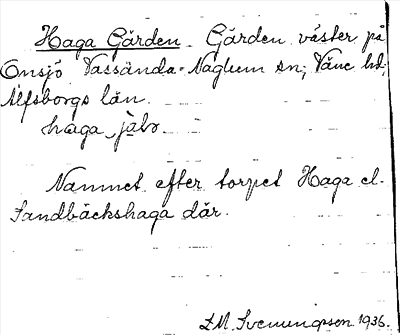 Haga Gärden. Gärden väster på
Onsjö Vassända-Naglum sn; Väne hd;
Älfsborgs län.
haga, jäbr.
Namnet efter torpet Haga el.
Sandbäckshaga där.
L.M. Svenungsson 1936.